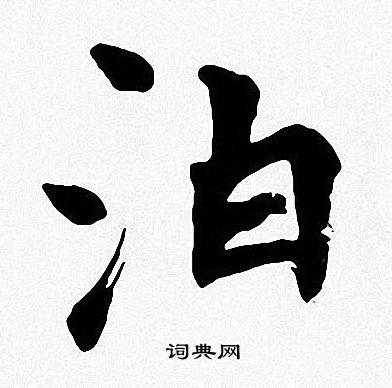 泊
词典网